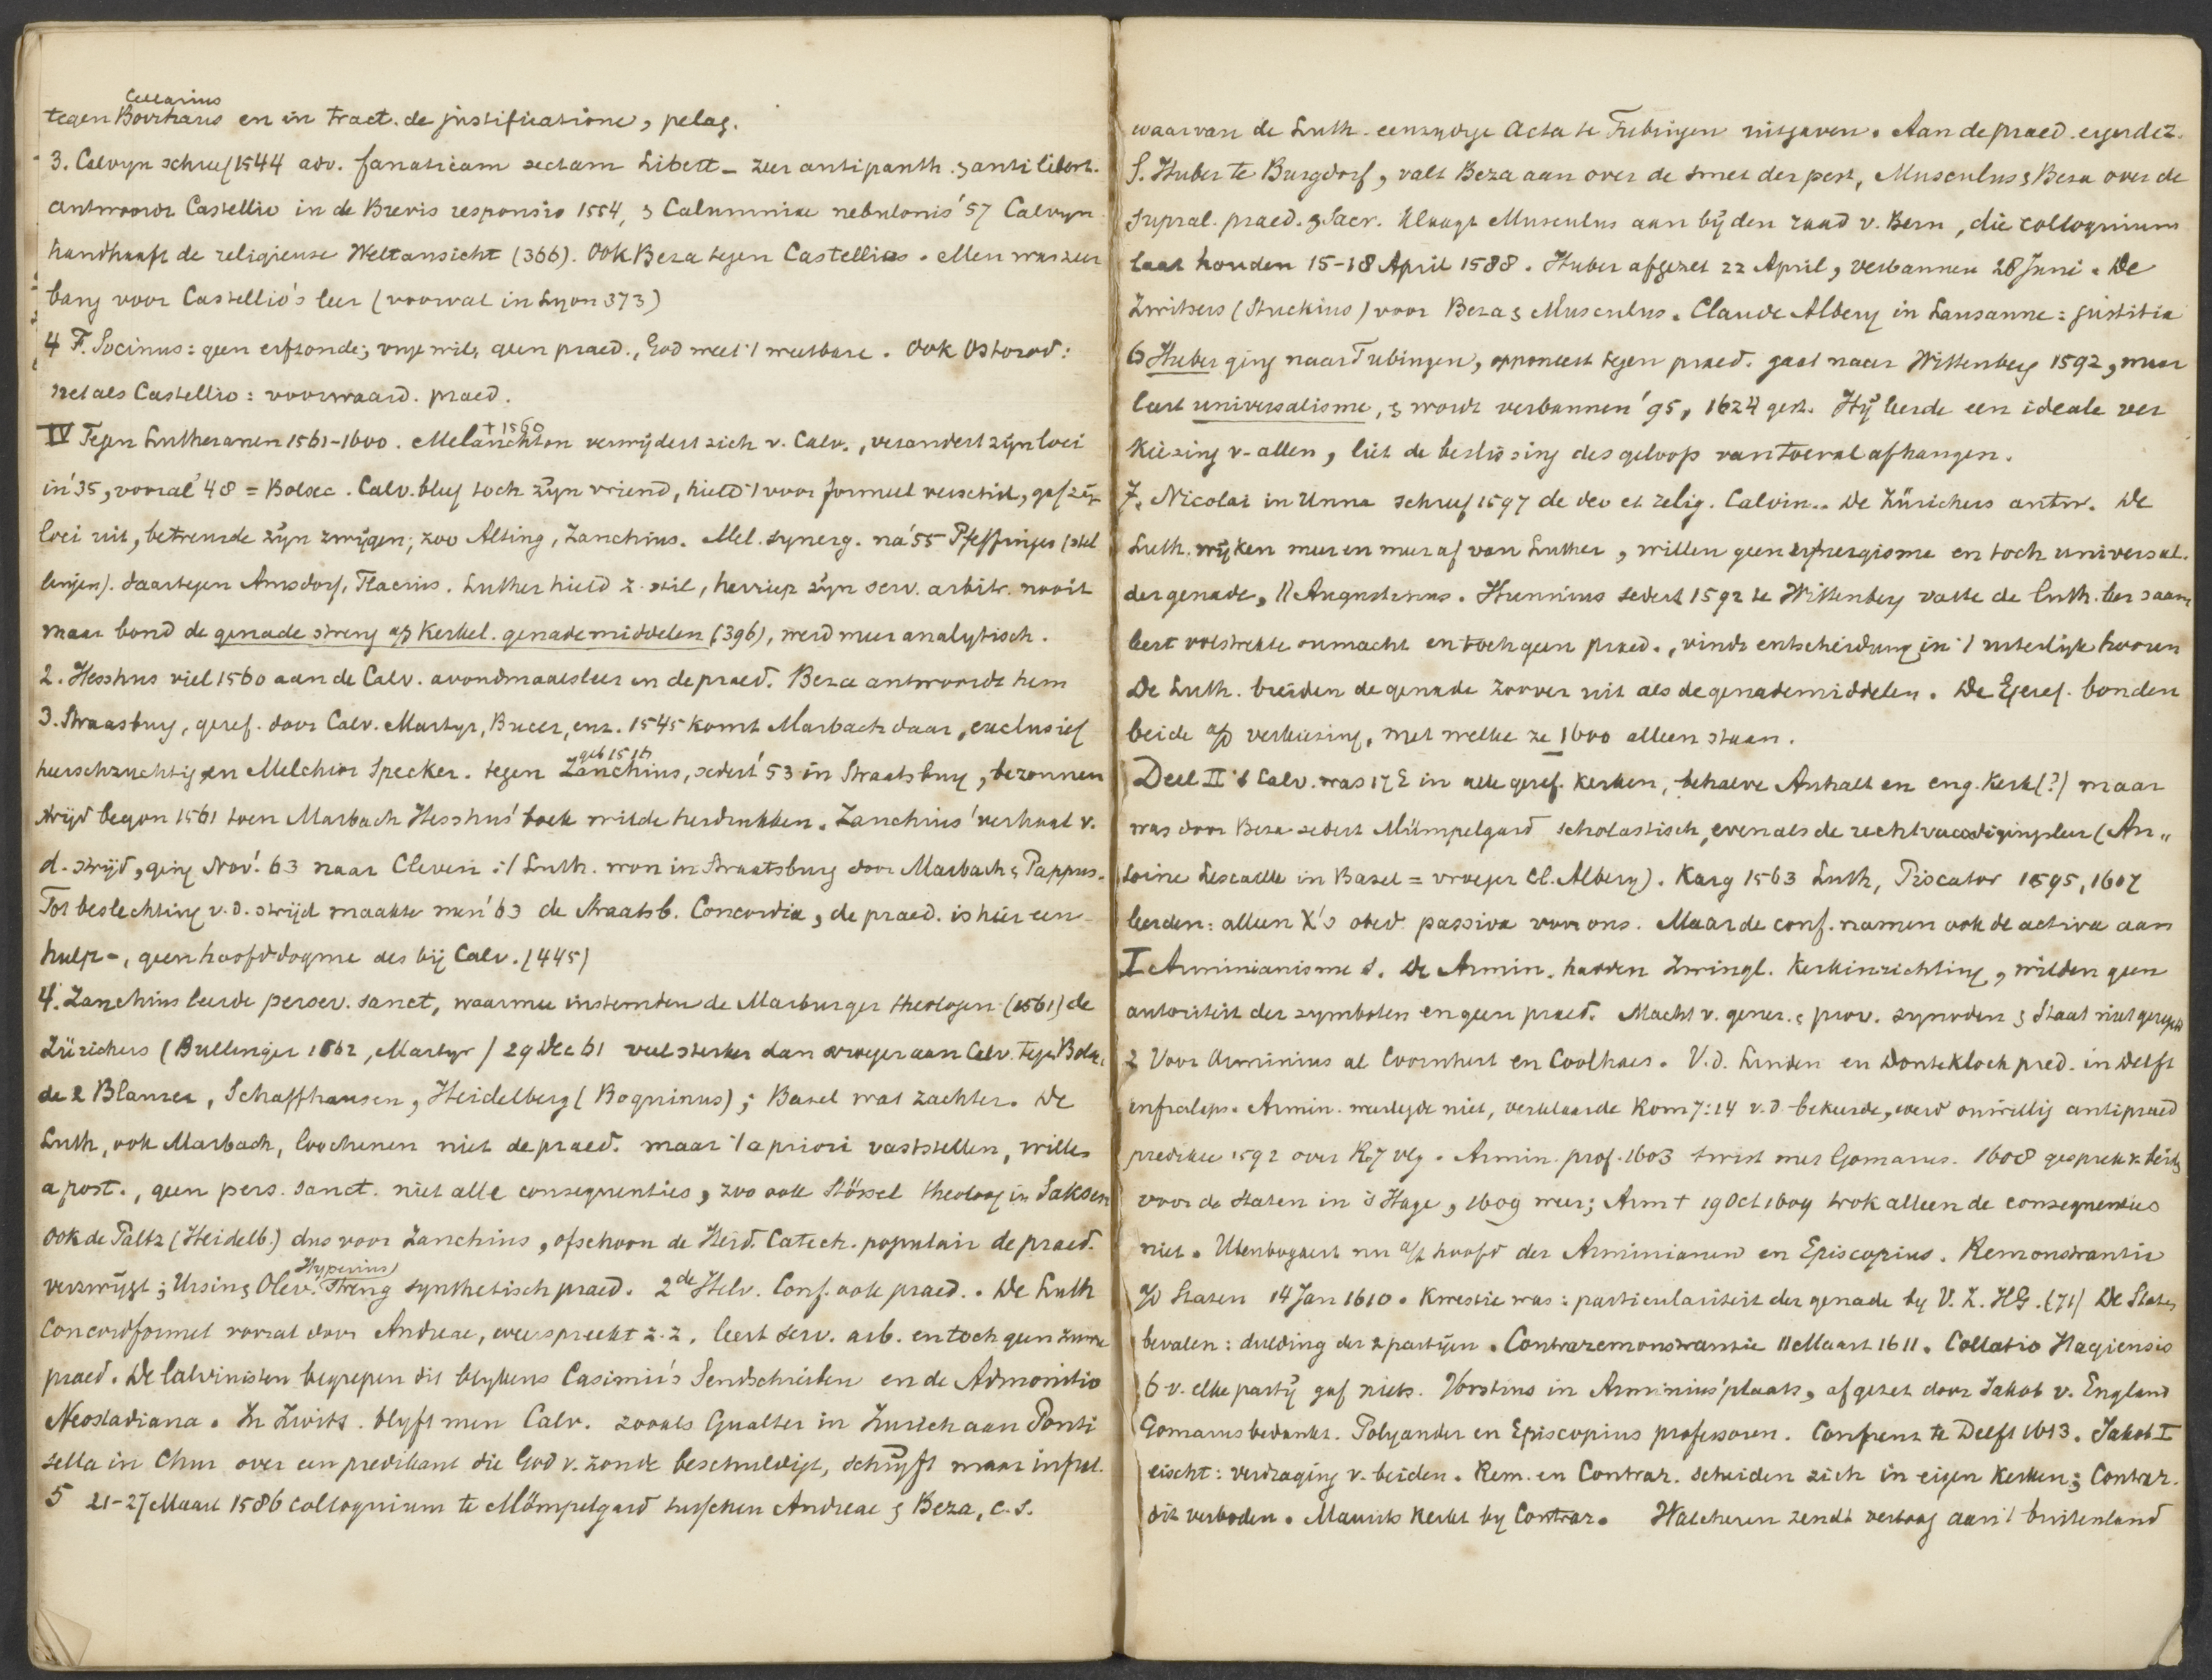 Cellarius
tegen Borrhaus en in tract. de justificatione, pelag.
3. Calvyn schreef 1544 adv. fanaticam sectam Libert - zeer antipanth. & anti libert.
antwoordt Castellio in de Brevis responsio 1554, & Calumniae nebulonis '57 Calvyn
handhaaft de religieuse Weltansicht (366). Ook Beza tegen Castellio. Men was zeer
bang voor Castellio's leer (vooral in Lyon 373)
4 F. Socinus: geen erfzonde; vrye wil, geen praed., God weet 't weetbare. Ook Ostorod:
net als Castellio: voorwaard. praed.
IV Tegen Lutheranen 1561-1600. Melanchton † 1560 verwijdert zich v. Calv., verandert zijn loci
in '35, vooral '48 = Bolsec. Calv. bleef toch zijn vriend, hield 't voor formeel verschil, gaf zijn
loci uit, betreurde zijn zwijgen; zoo Alting, Zanchius. Mel. synerg. na '55 Pfeffinger (stel
lingen). daartegen Amsdorf, Flacius. Luther hield z. stil, herriep zijn serv. arbitr. nooit
maar bond de genade streng a/d kerkel. genademiddelen (396), werd meer analytisch.
2. Hesshus viel 1560 aan de Calv. avondmaalsleer en de praed. Beza antwoordt hem
3. Straasburg, geref. door Calv. Martyr, Bucer, enz. 1545 komt Marbach daar, exclusief
heerschzuchtig en Melchior Specker. tegen Zanchius, geb 1516 sedert '53 in Straatsburg, bezonnen
strijd begon 1561 toen Marbach Hesshus' boek wilde herdrukken. Zanchius' verhaal v.
d. strijd, ging Nov. '63 naar Cleven: 't Luth. won in Straatsburg door Marbach & Pappus.
Tot beslechting v. d. strijd maakte men '63 de Straatsb. Concordia, de praed. is hier een
hulp-, geen hoofddogme als bij Calv. (445)
4. Zanchius leerde persev. sanct, waarmee instemden de Marburger theologen (1561) de
Zürichers (Bullinger 1562, Martyr) 29 Dec 61 veel sterker dan vroeger aan Calv. tegen Bolsec,
de 2 Blaurer, Schaffhausen, Heidelberg (Boquinus); Basel was zachter. De
Luth, ook Marbach, loochenen niet de praed. maar 't a priori vaststellen, willen
a post., geen pers. sanct. niet alle consequenties, zoo ook Stössel theoloog in Saksen
Ook de Paltz (Heidelb.) dus voor Zanchius, ofschoon de Heid. Catech. populair de praed.
verzwijgt; Ursin & Olev. Hyperius streng synthetisch praed. 2de Helv. Conf. ook praed. De Luth
Concordformel vooral door Andreae, weerspreekt z.z. leert serv. arb. en toch geen zuivre
praed. De Calvinisten begrepen dit blykens Casimir's Sendschreiben en de Admonitio
Neostadiana. In Zwits. blyft men Calv. zooals Gualter in Zurich aan Ponti
sella in Chur over een predikant die God v. zonde beschuldigt, schrijft maar infral.
5 21-27 Maart 1586 colloquium te Mömpelgard tusschen Andreae & Beza, c.s.
waarvan de Luth. eenzydige Acta te Tubingen uitgaven. Aan de praed. ergerde z.
S. Huber te Burgdorf, valt Beza aan over de smet der pest, Musculus & Beza over de
supral. praed. & Sacr. klaagt Musculus aan bij den raad v. Bern, die colloquium
laat houden 15-18 April 1588. Huber afgezet 22 April, verbannen 28 Juni. De
Zwitsers (Stuckius) voor Beza & Musculus. Claude Albery in Lausanne: justitia
6 Huber ging naar Tubingen, opponeert tegen praed. gaat naar Wittenberg 1592, maar
leert universalisme, & wordt verbannen '95, 1624 gest. Hij leerde een ideale ver
kiezing v. allen, liet de beslissing des geloofs van toeval afhangen.
7. Nicolai in Unna schreef 1597 de deo et relig. Calvin.. De Zürichers antw. De
Luth. wijken meer en meer af van Luther, willen geen synergisme en toch universal.
der genade, || Augustinus. Hunnius sedert 1592 te Wittenberg vatte de luth. leer saam
leert volstrekte onmacht en toch geen praed., vindt entscheidung in 't uiterlijk hooren
De Luth. breiden de genade zoover uit als de genademiddelen. De Geref. bonden
beide a/d verkiezing, met welke ze 1600 alleen staan.
Deel II 't Calv. was 17 E in alle geref. kerken, behalve Anhalt en eng. kerk (?) maar
was door Beza sedert Mümpelgard scholastisch, evenals de rechtvaardigingsleer (An"
toine Lescaille in Basel = vroeger Cl. Albery). Karg 1563 Luth, Piscator 1595, 1607
leerden: alleen X's obed. passiva voor ons. Maar de conf. namen ook de activa aan
I Arminianisme 1. De Armin. hadden Zwingl. kerkinrichting, wilden geen
autoriteit der symbolen en geen praed. Macht v. gener. & prov. synoden & Staat niet geregeld
2 Voor Arminius al Coornhert en Coolhaes. V.d. Linden en Donteklock pred. in Delft
infralaps. Armin. weerlegde niet, verklaarde Rom 7:14 v.d. bekeerde, werd onwillig antipraed
predikte 1592 over R. 7 vlg. Armin. prof. 1603 twist met Gomarus. 1608 gesprek v. beide
voor de Staten in 's Hage, 1609 weer; Arm † 19 Oct 1609 trok alleen de consequenties
niet. Utenbogaert nu a/h hoofd der Arminianen en Episcopius. Remonstrantie
a/d Staten 14 Jan 1610. Kwestie was: particulariteit der genade by V. Z. HG. (71) De Staten
bevalen: dulding der 2 partijen. Contraremonstrantie 11 Maart 1611. Collatio Hagiensis
6 v. elke partij gaf niets. Vorstius in Arminius' plaats, afgezet door Jakob v. England
Gomarus bedankt. Polyander en Episcopius professoren. Conferent. te Delft 1613. Jakob I
eischt: verdraging v. beiden. Rem. en Contrar. scheiden zich in eigen kerken; Contrar.
dit verboden. Maurits kerkt by Contrar. Walcheren zendt vertoog aan 't buitenland